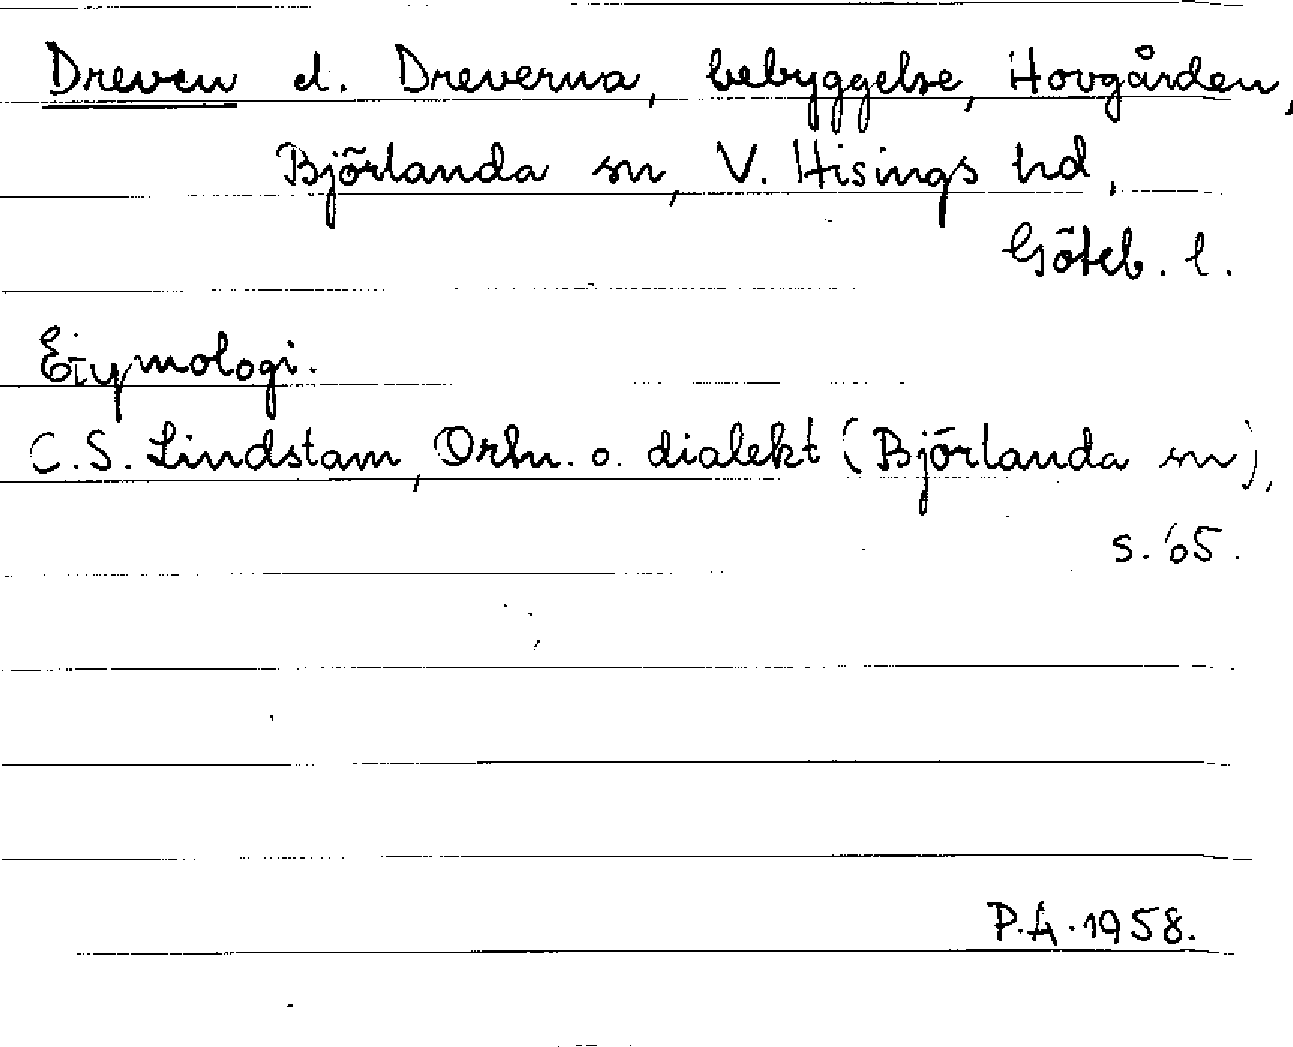 Dreven d. Dreverna, bebyggelse, Hovgården,
Björlanda sn, V. Hisings hd,
Göteb. l.
Etymologi.
C.S. Lindstam, Ortn. o. dialekt (Björlanda sn),
s. 65.
P.A. 1958.